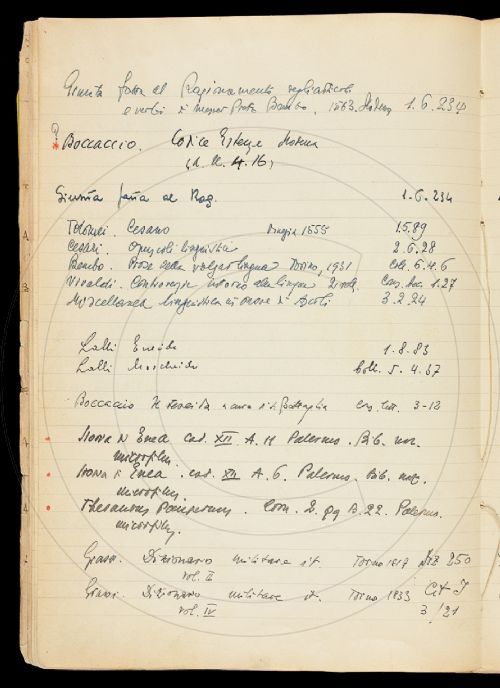 Giunta fatta al Ragionamento degli articoli
e verbi di messer Pietro Bembo, 1563, Modena 1.6.234
? Boccaccio. Codice Estense Modena
Giunta fatta al Rag. 1.6.234
Tolomei. Cesano 1555 15.89
Cesari. Opuscoli linguistici 2.6.28
Bembo. Prose della volgar lingua Torino, 1931 Coll. 5.4.6
Vivaldi. Controversie intorno alla lingua 2 voll. Cons. 1.27
Miscellanea linguistica in onore di Ascoli 3.2.24
Lalli Eneide 1.8.83
Lalli Moscheide Coll. 5.4.37
Boccaccio Il Teseida a cura di Battaglia Cons. Lett. 3-12
Storia di Enea cod. XII A. 11 Palermo. Bib. naz.
microfilm.
Storia di Enea. cod. XII A. 6. Palermo. Bib. naz.
microfilm.
Thesaurus Pauperum. Com. 2. Qq B. 22. Palermo.
microfilm.
Grassi. Dizionario militare it. Torino 1817 250
vol. II
Grassi. Dizionario militare it. Torino 1833
vol. IV 3/21